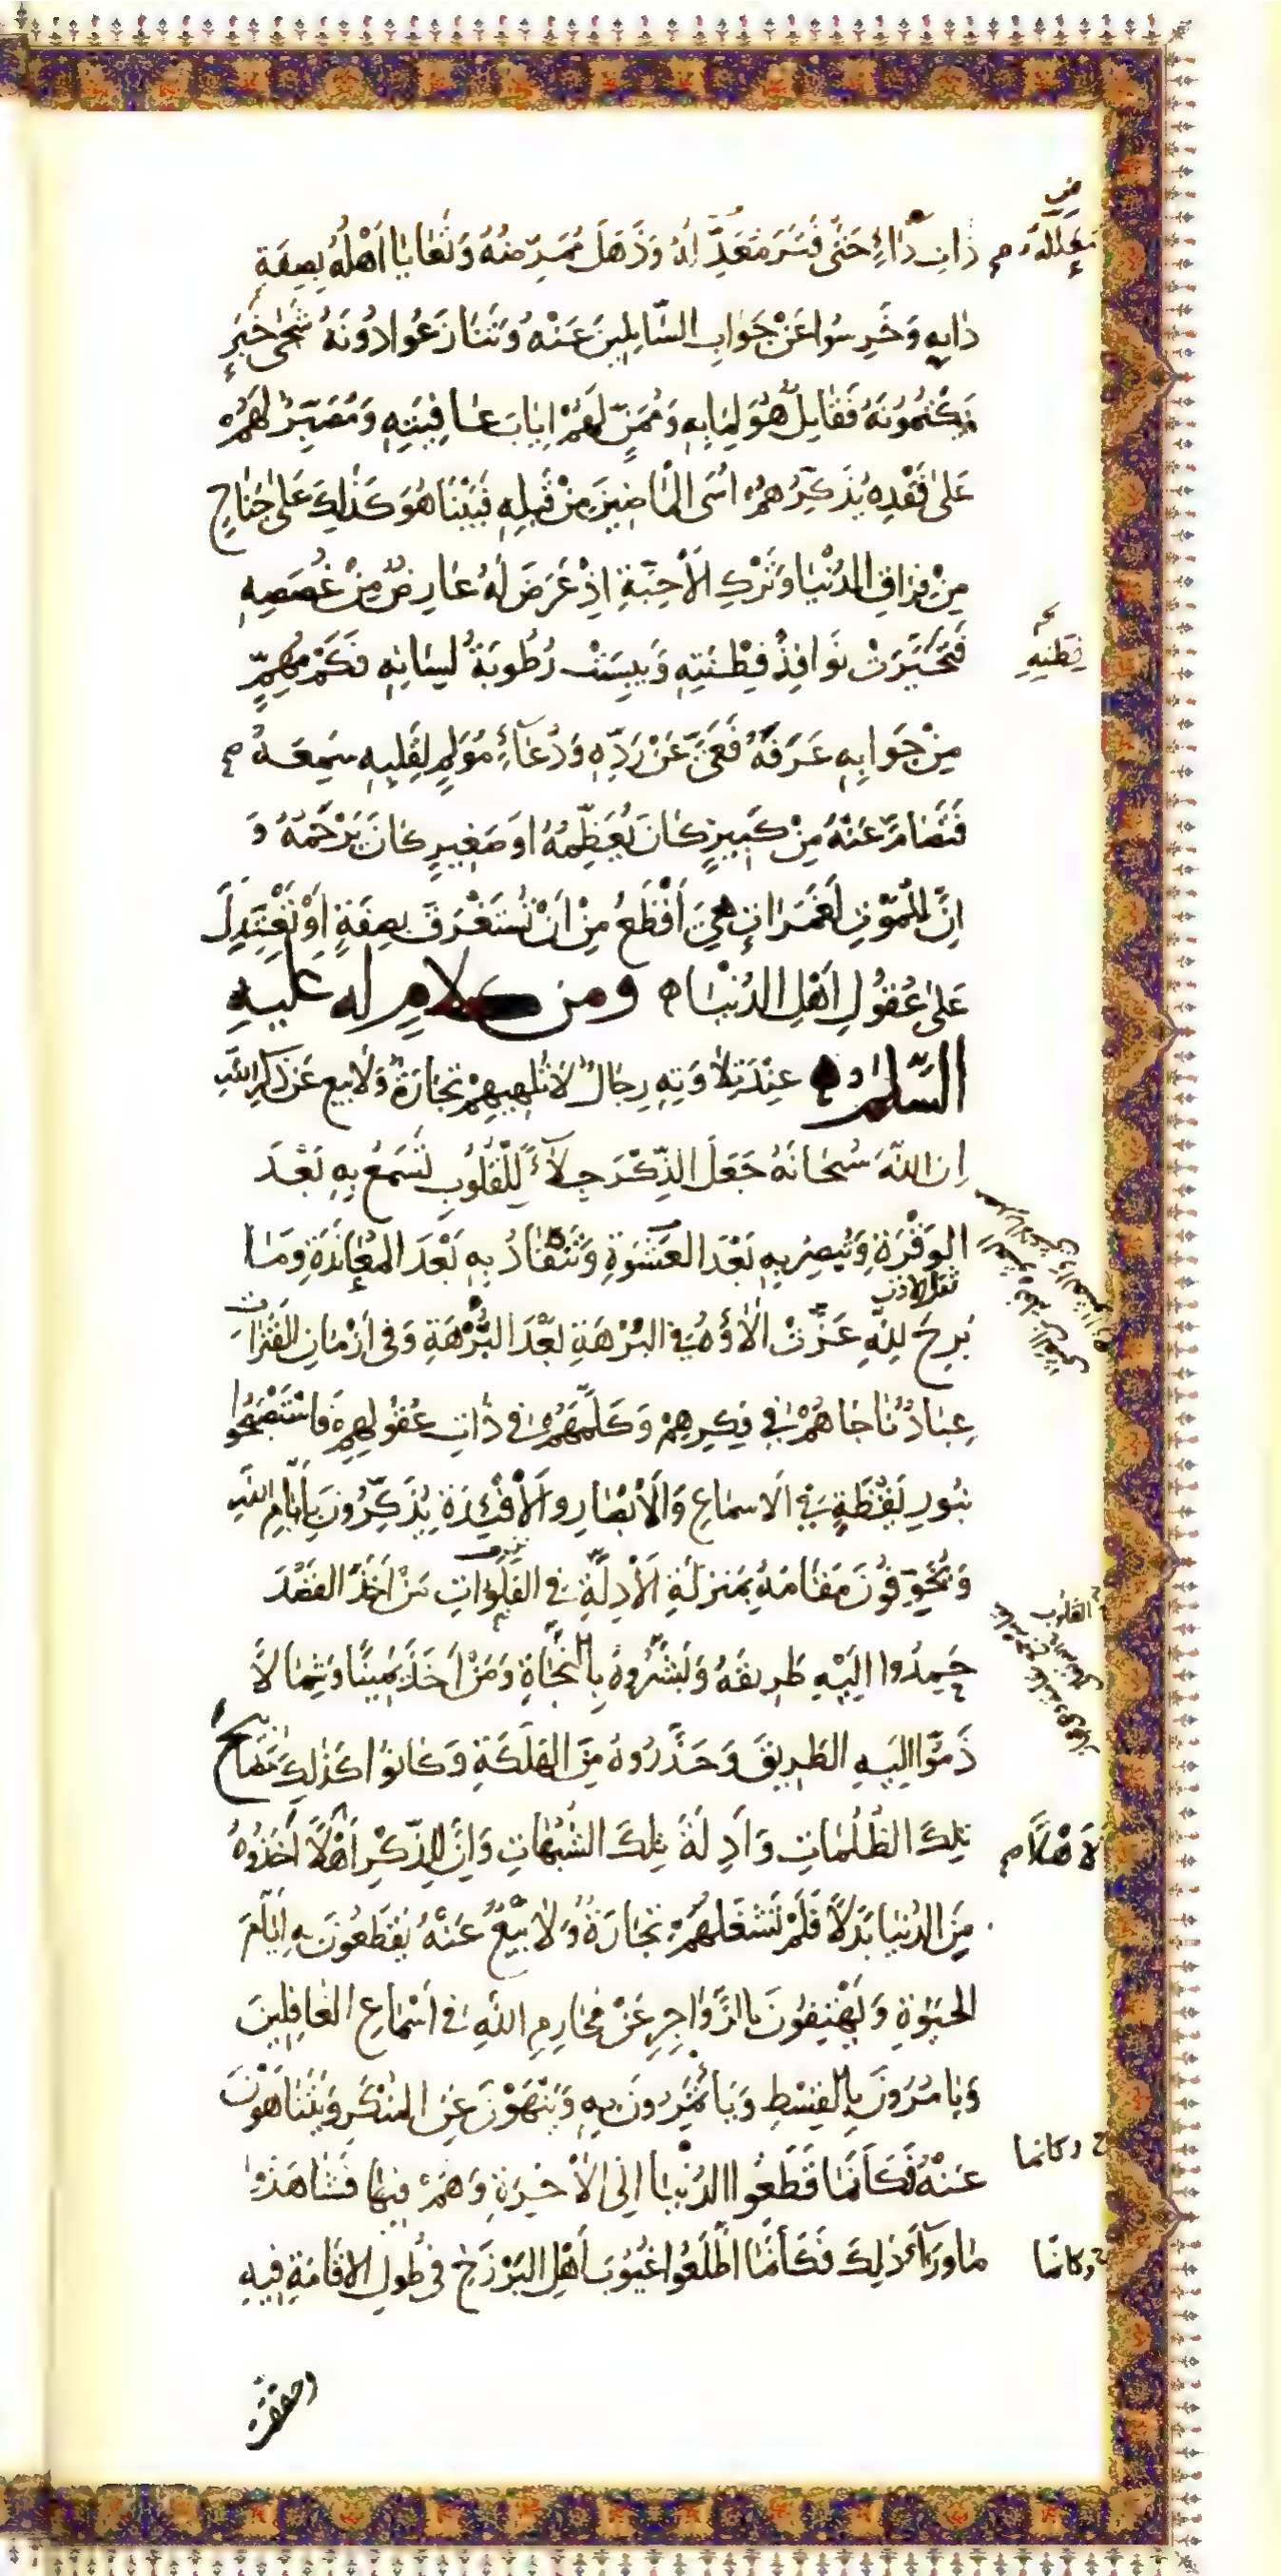 ذاتِ دَاءٍ حَتّٰى فَتَرَ مُعَلِّلُهُ وَذَهَلَ مُمَرِّضُهُ وَتَعَايَا اَهْلُهُ بِصِفَةِ
دَايِهِ وَخَرِسُوا عَنْ جَوَابِ السَّايِلِينَ عَنْهُ وَتَنَازَعُوا دُونَهُ شَجٰى خَبَرٍ
يَكْتُمُونَهُ فَقَايِلٌ هُوَ لِمَا بِهِ وَمُمَنٍّ لَهُمْ اِيَابَ عَافِيَتِهِ وَمُصَبِّرٌ لَهُمْ
عَلٰى فَقْدِهِ يُذَكِّرُهُمْ اُسَى الْمَاضِينَ مِنْ قَبْلِهِ فَبَيْنَا هُوَ كَذٰلِكَ عَلٰى جَنَاحٍ
مِنْ فِرَاقِ الدُّنْيَا وَتَرْكِ الْاَحِبَّةِ اِذْ عَرَضَ لَهُ عَارِضٌ مِنْ غُصَصِهِ
فَتَحَيَّرَتْ نَوَافِذُ فِطْنَتِهِ وَيَبِسَتْ رُطُوبَةُ لِسَانِهِ فَكَمْ مِنْ مُهِمٍّ
مِنْ جَوَابِهِ عَرَفَهُ فَعَيَّ عَنْ رَدِّهِ وَدُعَاءٍ مُؤْلِمٍ لِقَلْبِهِ سَمِعَهُ
فَتَصَامَّ عَنْهُ مِنْ كَبِيرٍ كَانَ يُعَظِّمُهُ اَوْ صَغِيرٍ كَانَ يَرْحَمُهُ وَ
اِنَّ لِلْمَوْتِ لَغَمَرَاتٍ هِيَ اَفْظَعُ مِنْ اَنْ تُسْتَغْرَقَ بِصِفَةٍ اَوْ تَعْتَدِلَ
عَلٰى عُقُولِ اَهْلِ الدُّنْيَا ومن كلامٍ له عليهِ
السَّلام عِنْدَ تِلَاوَتِهِ رِجَالٌ لَا تُلْهِيهِمْ تِجَارَةٌ وَلَا بيع عَنْ ذِكْرِ اللهِ
اِنَّ اللهَ سُبْحَانَهُ جَعَلَ الذِّكْرَ جِلَاءً لِلْقُلُوبِ تَسْمَعُ بِهِ بَعْدَ
الوَقْرَةِ وَتُبْصِرُ بِهِ بَعْدَ العَشْوَةِ وَتَنْقَادُ بِهِ بَعْدَ المُعَانَدَةِ وَمَا
ثقل الاذن
بَرِحَ لِلّٰهِ عَزَّتْ اٰلَاؤُهُ فِي البُرْهَةِ بَعْدَ البُرْهَةِ وَفي اَزْمَانِ الفَتَرَاتِ
عِبَادٌ نَاجَاهُمْ فِي فِكْرِهِمْ وَكَلَّمَهُمْ فِي ذَاتِ عُقُولِهِمْ فَاسْتَصْبَحُوا
بِنُورِ يَقْظَةٍ فِي الاَسماعِ وَالْاَبْصَارِ وَالْاَفْئِدَةِ يُذَكِّرُونَ بِاَيَّامِ اللهِ
وَيُخَوِّفُونَ مَقَامَهُ بِمَنْزِلَةِ الْاَدِلَّةِ فِي الفَلَوَاتِ مَنْ اَخَذَ القَصْدَ
حَمِدُوا اِلَيْهِ طَرِيقَهُ وَبَشَّرُوهُ بِالنَّجَاةِ وَمَنْ اَخَذَ يَمِينًا وَشِمَالًا
ذَمُّوا اِلَيْهِ الطَّرِيقَ وَحَذَّرُوهُ مِنَ الهَلَكَةِ وَكَانُوا كَذٰلِكَ مَصَابِيحَ
تِلْكَ الظُّلُمَاتِ وَاَدِلَّةَ تِلْكَ الشُّبُهَاتِ وَاِنَّ لِلذِّكْرِ اَهْلًا اَخَذُوهُ
مِنَ الدُّنْيَا بَدَلًا فَلَمْ تَشْغَلْهُمْ تِجَارَةٌ وَلَا بَيْعٌ عَنْهُ يَقْطَعُونَ بِهِ اَيَّامَ
الحَيٰوةِ وَيَهْتِفُونَ بِالزَّوَاجِرِ عَنْ مَحَارِمِ اللهِ فِي اَسْمَاعِ الغَافِلِينَ
وَيَامُرُونَ بِالْقِسْطِ وَيَأْتَمِرُونَ بِهِ وَيَنْهَوْنَ عَنِ المُنْكَرِ وَيَتَنَاهَوْنَ
عَنْهُ فَكَاَنَّمَا قَطَعُوا الدُّنْيَا اِلَى الْاٰخِرَةِ وَهُمْ فِيهَا فَشَاهَدُوا
مَا وَرَاءَ ذٰلِكَ فَكَأَنَّمَا اطَّلَعُوا غُيُوبَ اَهْلِ البَرْزَخِ فِي طُولِ الاقَامَةِ فِيهِ
فِطْنَتِهِ
القلوب
لَاَهْلًا
وكانما
وكانّما